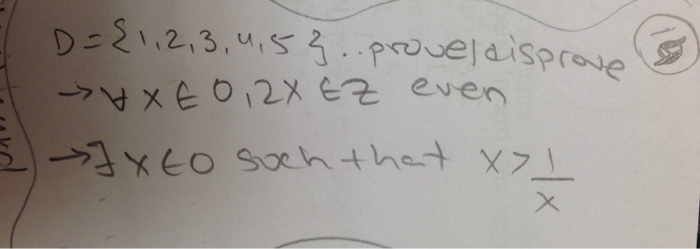 D={1,2,3,4,5}..prove/disprove
→∀x∈D,2x∈Z even
→∃x∈D such that x>1/x